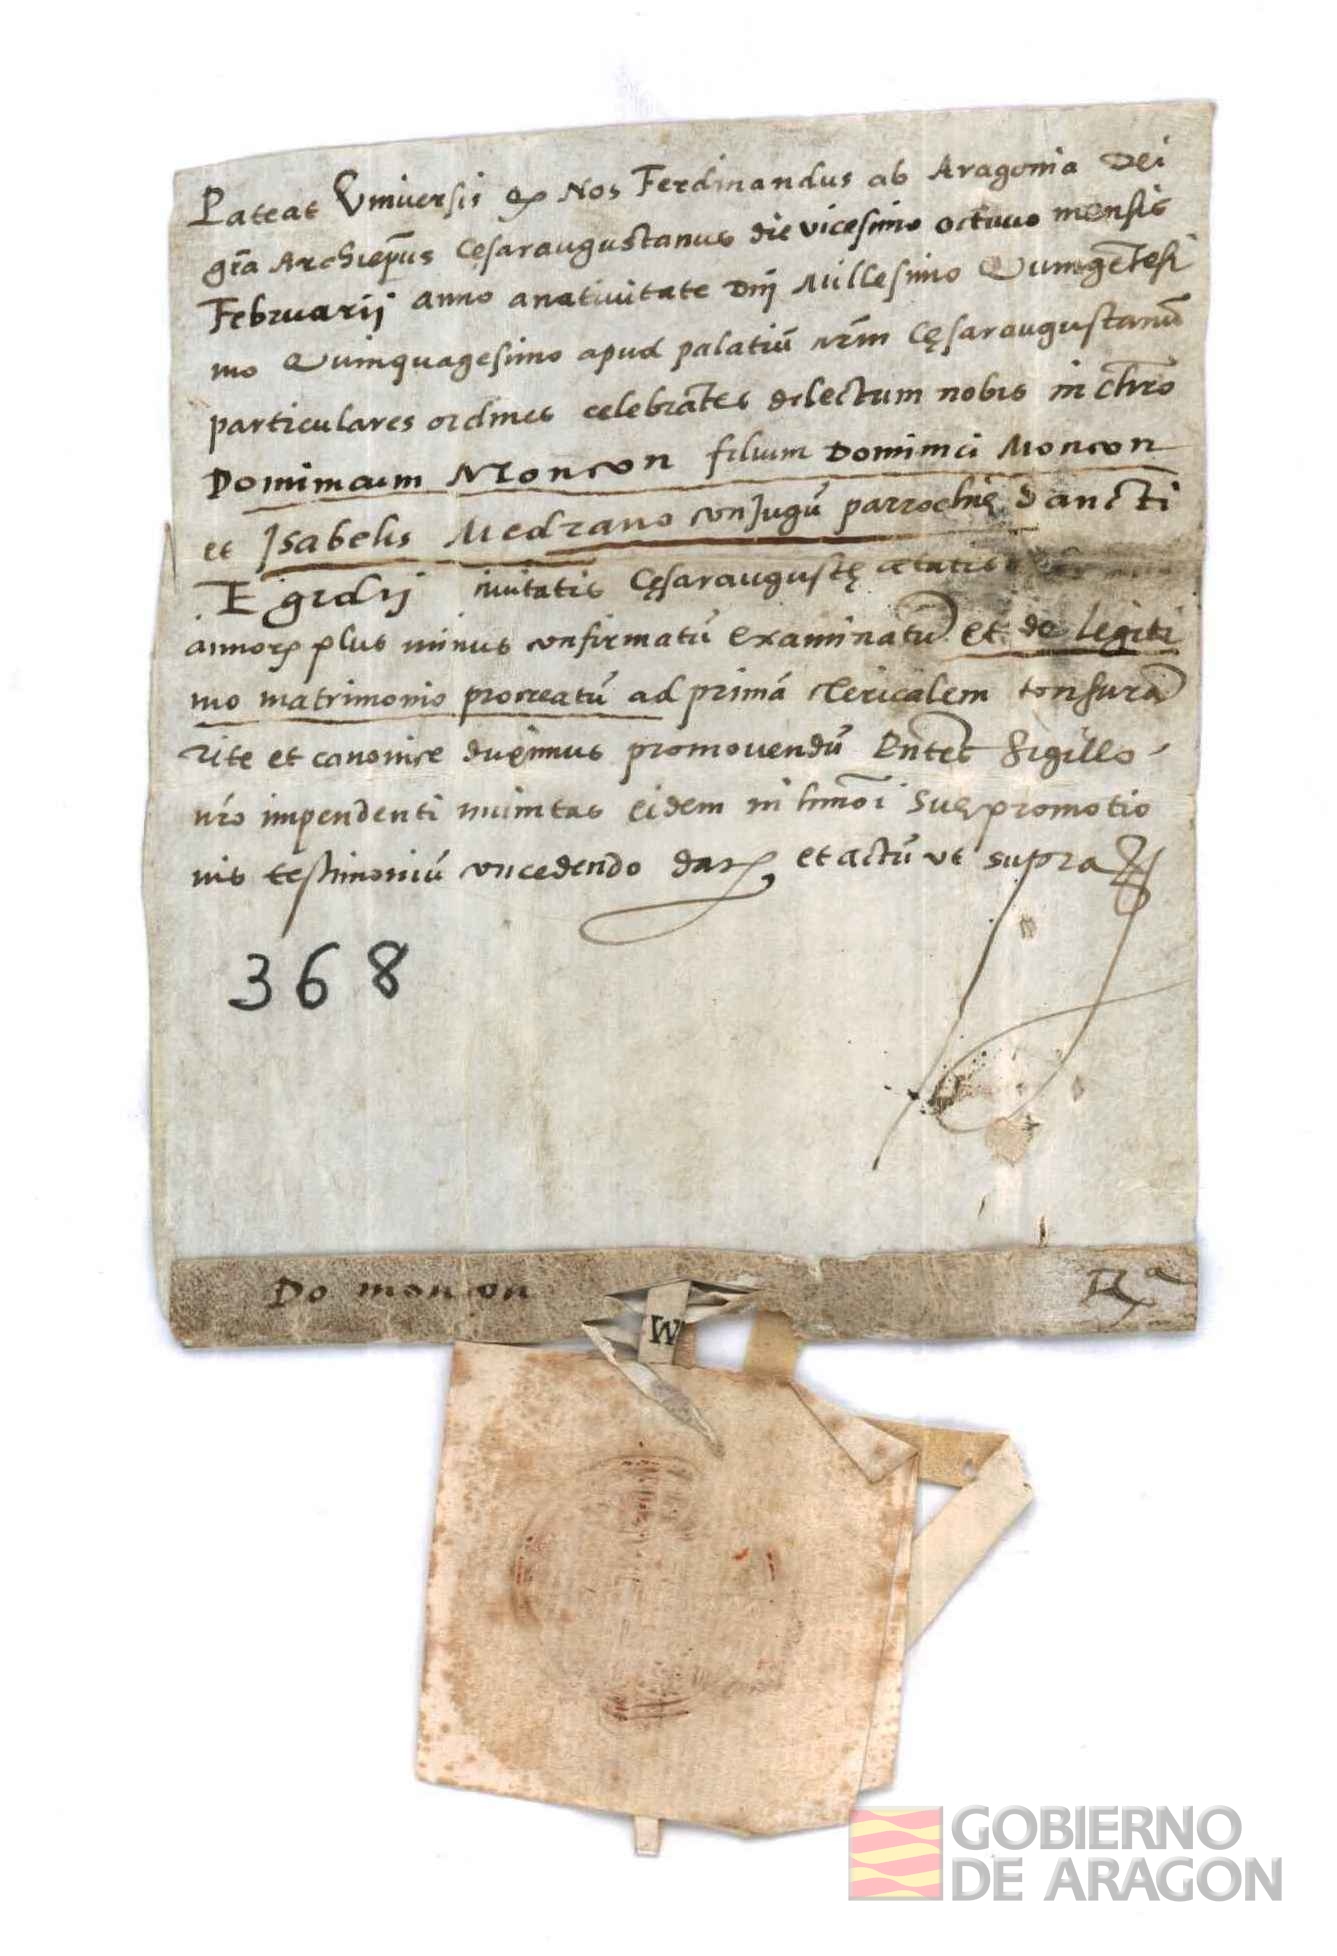 Pateat Universis qp Nos Ferdinandus ab Aragonia Dei
gr̃a Archiep̃us Cęsaraugustanus die vicesimo octavo mensis
Februarij anno anativitate Dñi Millesimo Quingẽtesi
mo Quinquagesimo apud palatiũ nr̃m Cęsaraugustanũ
particulares ordines celebrãtes dilectum nobis in Chr̃o
Dominicum Moncon filium Dominici Moncon
et Isabelis Medrano conjugũ parrochię Sancti
Egidij civitatis Cęsaraugustę ętatis
annorꝝ plus minus confirmatũ examinatũ et de legiti
mo matrimonio procreatũ ad primã clericalem tonsurã
rite et canonice duximus promovendũ Pñtes sigillo
nr̃o impendenti munitas eidem in hmõi suę promotio
nis testimoniũ concedendo datꝝ et actũ ut supra
368
Do moncon
Rᵃ
M
GOBIERNO
DE ARAGON